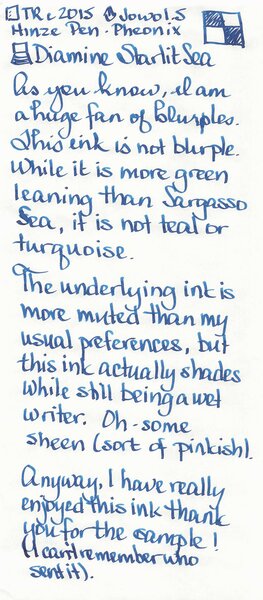 TRC 2015 Jowo 1.5
Hinze Pen - Pheonix
Diamine Starlit Sea
As you know, I am
a huge fan of blurples.
This ink is not blurple.
While it is more green
leaning than Sargasso
Sea, it is not teal or
turquoise.
The underlying ink is
more muted than my
usual preferences, but
this ink actually shades
while still being a wet
writer. Oh - some
sheen (sort of pinkish).
Anyway, I have really
enjoyed this ink thank
you for the sample!
(I can't remember who
sent it).